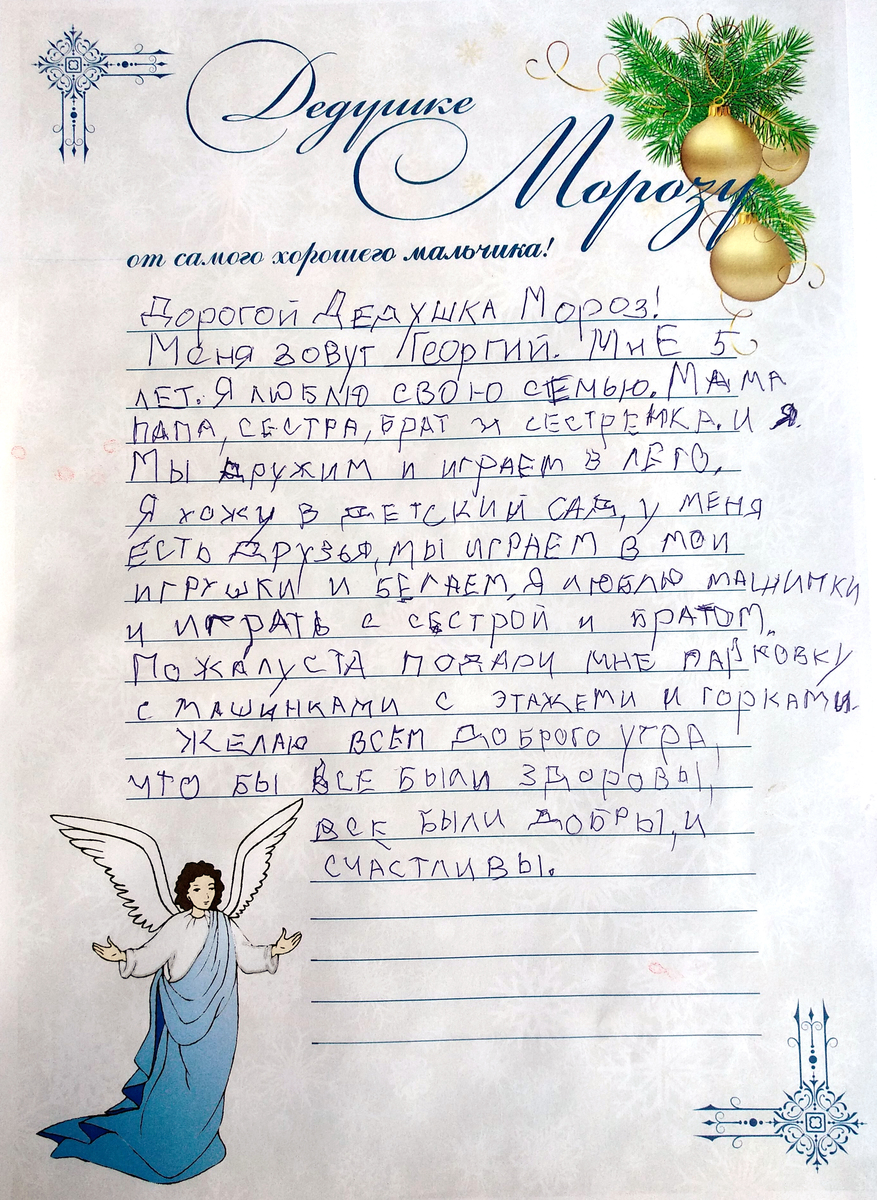 Дедушке
Морозу
от самого хорошего мальчика!
Дорогой Дедушка Мороз!
Меня зовут Георгий. Мне 5
лет. Я люблю свою семью. Мама
папа, сестра, брат и сестремка. и я.
Мы дружим и играем в лего.
Я хожу в детский сад, у меня
есть друзья, мы играем в мои
игрушки и бегаем, я люблю машинки
и играть с сестрой и братом.
Пожалуста подари мне парковку
с машинками с этажеми и горками.
Желаю всем доброго утра,
что бы все были здоровы,
все были добры, и
счастливы.